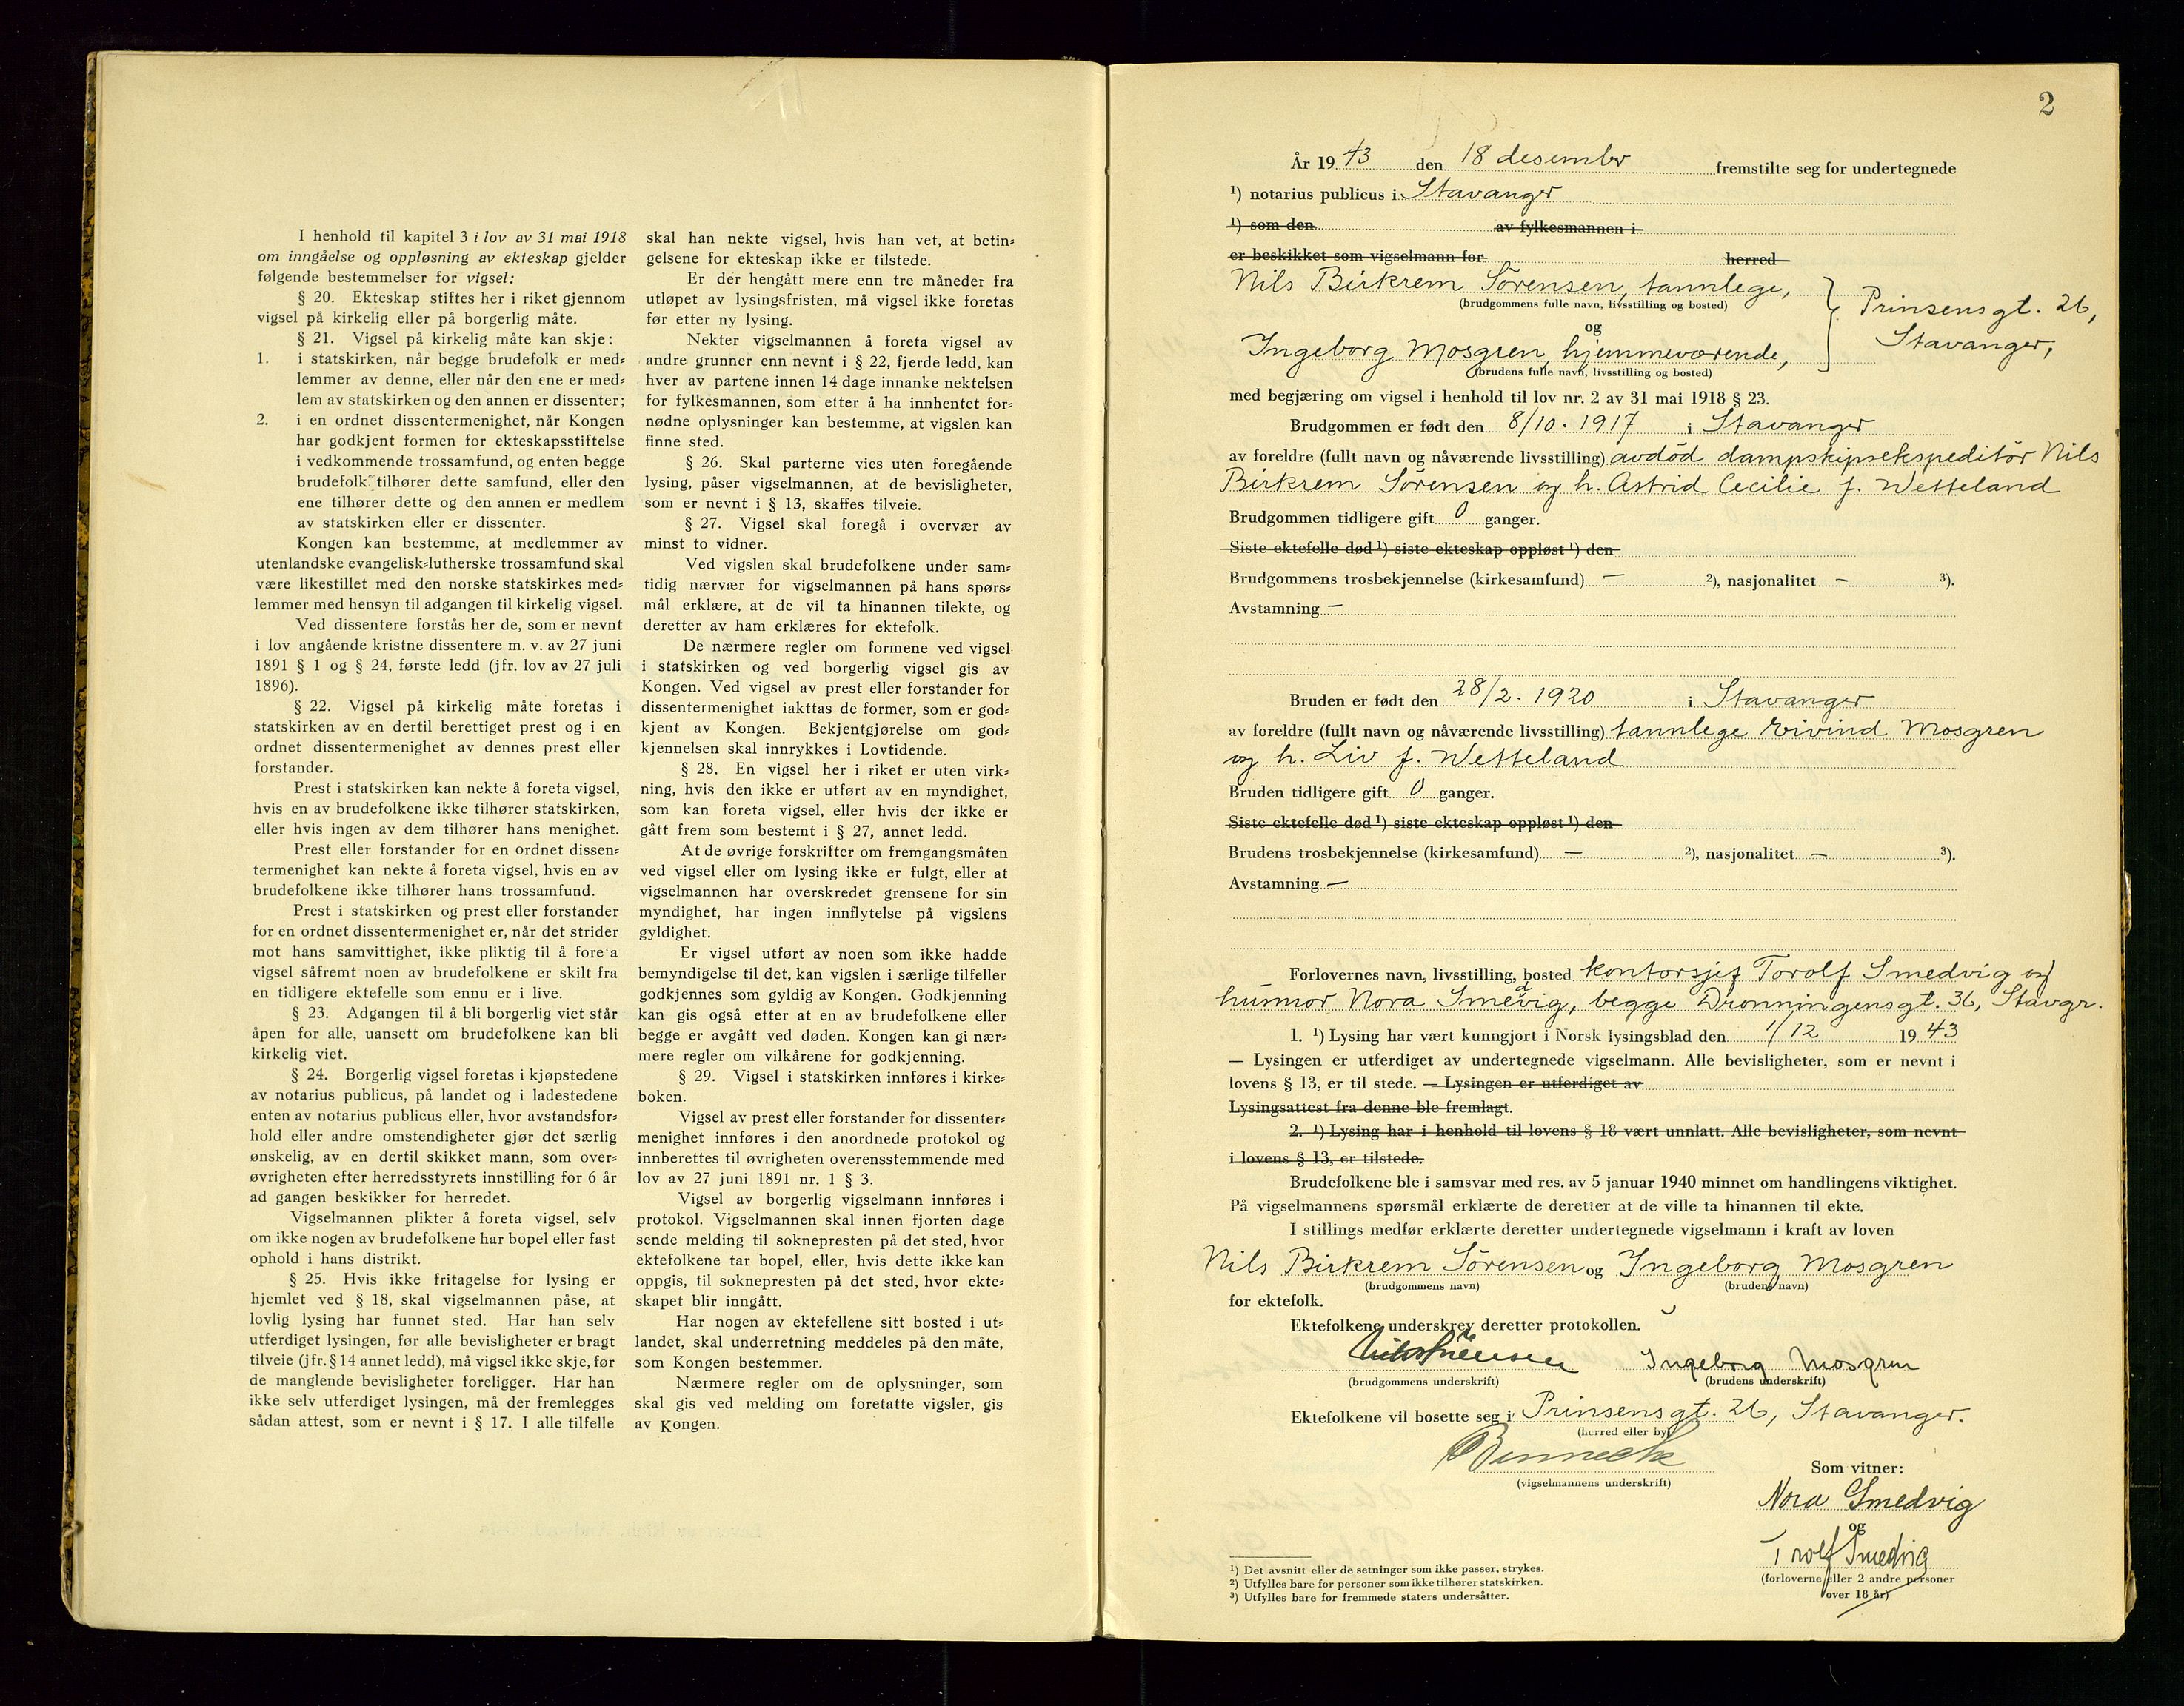 I henhold til kapitel 3 i lov av 31 mai 1918
om inngåelse og oppløsning av ekteskap gjelder
følgende bestemmelser for vigsel:
§ 20. Ekteskap stiftes her i riket gjennom
vigsel på kirkelig eller på borgerlig måte.
§ 21. Vigsel på kirkelig måte kan skje:
1. i statskirken, når begge brudefolk er med=
lemmer av denne, eller når den ene er med=
lem av statskirken og den annen er dissenter;
2. i en ordnet dissentermenighet, når Kongen
har godkjent formen for ekteskapsstiftelse
i vedkommende trossamfund, og enten begge
brudefolk tilhører dette samfund, eller den
ene tilhører dette og den annen er medlem
av statskirken eller er dissenter.
Kongen kan bestemme, at medlemmer av
utenlandske evangelisk=lutherske trossamfund skal
være likestillet med den norske statskirkes med=
lemmer med hensyn til adgangen til kirkelig vigsel.
Ved dissentere forstås her de, som er nevnt
i lov angående kristne dissentere m. v. av 27 juni
1891 § 1 og § 24, første ledd (jfr. lov av 27 juli
1896).
§ 22. Vigsel på kirkelig måte foretas i
statskirken av en dertil berettiget prest og i en
ordnet dissentermenighet av dennes prest eller
forstander.
Prest i statskirken kan nekte å foreta vigsel,
hvis en av brudefolkene ikke tilhører statskirken,
eller hvis ingen av dem tilhører hans menighet.
Prest eller forstander for en ordnet dissen=
termenighet kan nekte å foreta vigsel, hvis en av
brudefolkene ikke tilhører hans trossamfund.
Prest i statskirken og prest eller forstander
for en ordnet dissentermenighet er, når det strider
mot hans samvittighet, ikke pliktig til å fore'a
vigsel såfremt noen av brudefolkene er skilt fra
en tidligere ektefelle som ennu er i live.
§ 23. Adgangen til å bli borgerlig viet står
åpen for alle, uansett om brudefolkene kan bli
kirkelig viet.
§ 24. Borgerlig vigsel foretas i kjøpstedene
av notarius publicus, på landet og i ladestedene
enten av notarius publicus eller, hvor avstandsfor=
hold eller andre omstendigheter gjør det særlig
ønskelig, av en dertil skikket mann, som over=
øvrigheten efter herredsstyrets innstilling for 6 år
ad gangen beskikker for herredet.
Vigselmannen plikter å foreta vigsel, selv
om ikke nogen av brudefolkene har bopel eller fast
ophold i hans distrikt.
§ 25. Hvis ikke fritagelse for lysing er
hjemlet ved § 18, skal vigselmannen påse, at
lovlig lysing har funnet sted. Har han selv
utferdiget lysingen, før alle bevisligheter er bragt
tilveie (jfr. § 14 annet ledd), må vigsel ikke skje, før
de manglende bevisligheter foreligger. Har han
ikke selv utferdiget lysingen, må der fremlegges
sådan attest, som er nevnt i § 17. I alle tilfelle
skal han nekte vigsel, hvis han vet, at betin=
gelsene for ekteskap ikke er tilstede.
Er der hengått mere enn tre måneder fra
utløpet av lysingsfristen, må vigsel ikke foretas
før etter ny lysing.
Nekter vigselmannen å foreta vigsel av
andre grunner enn nevnt i § 22, fjerde ledd, kan
hver av partene innen 14 dage innanke nektelsen
for fylkesmannen, som etter å ha innhentet for=
nødne oplysninger kan bestemme, at vigslen kan
finne sted.
§ 26. Skal parterne vies uten foregående
lysing, påser vigselmannen, at de bevisligheter,
som er nevnt i § 13, skaffes tilveie.
§ 27. Vigsel skal foregå i overvær av
minst to vidner.
Ved vigslen skal brudefolkene under sam=
tidig nærvær for vigselmannen på hans spørs=
mål erklære, at de vil ta hinannen tilekte, og
deretter av ham erklæres for ektefolk.
De nærmere regler om formene ved vigsel
i statskirken og ved borgerlig vigsel gis av
Kongen. Ved vigsel av prest eller forstander for
dissentermenighet iakttas de former, som er god=
kjent av Kongen. Bekjentgjørelse om god=
kjennelsen skal innrykkes i Lovtidende.
§ 28. En vigsel her i riket er uten virk=
ning, hvis den ikke er utført av en myndighet,
som kan foreta vigsel, eller hvis der ikke er
gått frem som bestemt i § 27, annet ledd.
At de øvrige forskrifter om fremgangsmåten
ved vigsel eller om lysing ikke er fulgt, eller at
vigselmannen har overskredet grensene for sin
myndighet, har ingen innflytelse på vigslens
gyldighet.
Er vigsel utført av noen som ikke hadde
bemyndigelse til det, kan vigslen i særlige tilfeller
godkjennes som gyldig av Kongen. Godkjenning
kan gis også etter at en av brudefolkene eller
begge er avgått ved døden. Kongen kan gi nær=
mere regler om vilkårene for godkjenning.
§ 29. Vigsel i statskirken innføres i kirke=
boken.
Vigsel av prest eller forstander for dissenter=
menighet innføres i den anordnede protokol og
innberettes til øvrigheten overensstemmende med
lov av 27 juni 1891 nr. 1 § 3.
Vigsel av borgerlig vigselmann innføres i
protokol. Vigselmannen skal innen fjorten dage
sende melding til soknepresten på det sted, hvor
ektefolkene tar bopel, eller, hvis dette ikke kan
oppgis, til soknepresten på det sted, hvor ekte=
skapet blir inngått.
Har nogen av ektefellene sitt bosted i ut=
landet, skal underretning meddeles på den måte,
som Kongen bestemmer.
Nærmere regler om de oplysninger, som
skal gis ved melding om foretatte vigsler, gis
av Kongen.
2
År 1943 den 18 desember fremstilte seg for undertegnede
¹) notarius publicus i Stavanger
¹) som den av fylkesmannen i
er beskikket som vigselmann for herred
Nils Birkrem Sörensen, tannlege,
(brudgommens fulle navn, livsstilling og bosted)
og
Ingeborg Mosgren, hjemmeværende,
(brudens fulle navn, livsstilling og bosted)
Prinsensgt. 26,
Stavanger,
med begjæring om vigsel i henhold til lov nr. 2 av 31 mai 1918 § 23.
Brudgommen er født den 8/10. 1917 i Stavanger
av foreldre (fullt navn og nåværende livsstilling) avdöd dampskipsekspeditör Nils
Birkrem Sörensen og h. Astrid Cecilie f. Wetteland
Brudgommen tidligere gift 0 ganger.
Siste ektefelle død ¹) siste ekteskap oppløst ¹) den
Brudgommens trosbekjennelse (kirkesamfund) — ²), nasjonalitet — ³).
Avstamning —
Bruden er født den 28/2. 1920 i Stavanger
av foreldre (fullt navn og nåværende livsstilling) tannlege Eivind Mosgren
og h. Liv f. Wetteland
Bruden tidligere gift 0 ganger.
Siste ektefelle død ¹) siste ekteskap oppløst ¹) den
Brudens trosbekjennelse (kirkesamfund) — ²), nasjonalitet — ³).
Avstamning —
Forlovernes navn, livsstilling, bosted kontorsjef Torolf Smedvig og
husmor Nora Smedvig, begge Dronningensgt. 36, Stavgr.
1. ¹) Lysing har vært kunngjort i Norsk lysingsblad den 1/12 1943
— Lysingen er utferdiget av undertegnede vigselmann. Alle bevisligheter, som er nevnt i
lovens § 13, er til stede. — Lysingen er utferdiget av
Lysingsattest fra denne ble fremlagt.
2. ¹) Lysing har i henhold til lovens § 18 vært unnlatt. Alle bevisligheter, som nevnt
i lovens § 13, er tilstede.
Brudefolkene ble i samsvar med res. av 5 januar 1940 minnet om handlingens viktighet.
På vigselmannens spørsmål erklærte de deretter at de ville ta hinannen til ekte.
I stillings medfør erklærte deretter undertegnede vigselmann i kraft av loven
Nils Birkrem Sörensen og Ingeborg Mosgren
(brudgommens navn) (brudens navn)
for ektefolk.
Ektefolkene underskrev deretter protokollen.
Ingeborg Mosgren
(brudgommens underskrift) (brudens underskrift)
Ektefolkene vil bosette seg i Prinsensgt. 26, Stavanger.
(herred eller by)
(vigselmannens underskrift)
Som vitner:
Nora Smedvig
og
Torolf Smedvig
(forloverne eller 2 andre personer
over 18 år)
¹) Det avsnitt eller de setninger som ikke passer, strykes.
²) Utfylles bare for personer som ikke tilhører statskirken.
³) Utfylles bare for fremmede staters undersåtter.